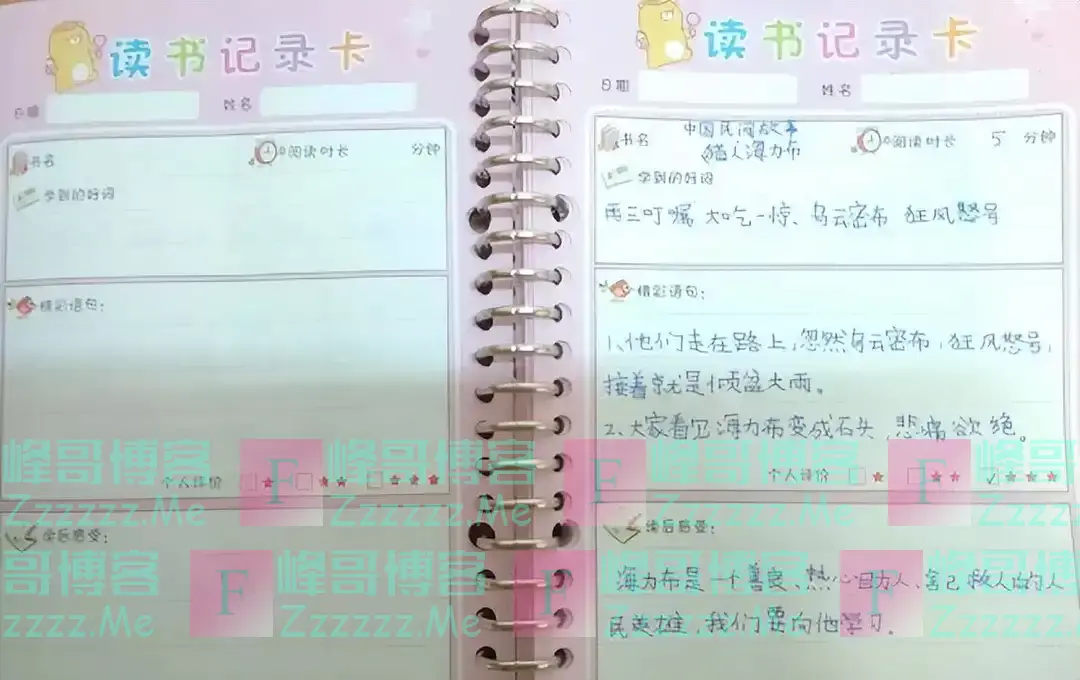 读书记录卡
日期 姓名
书名 阅读时长 分钟
学到的好词
精彩语句:
个人评价
读后感受:
读书记录卡
日期 姓名
书名 中国民间故事 阅读时长 5 分钟
猎人海力布
学到的好词
再三叮嘱 大吃一惊、乌云密布 狂风怒号
精彩语句:
1、他们走在路上,忽然乌云密布,狂风怒号,
接着就是倾盆大雨。
2、大家看见海力布变成石头,悲痛欲绝。
个人评价 ✓
读后感受:
海力布是一个善良、热心助人、舍己救人的人
民英雄,我们要向他学习.
峰哥博客 F 峰哥博客 F 峰哥博客 F 峰哥
Zzzzzz.Me Zzzzzz.Me Zzzzzz.Me Zzzz
哥博客 F 峰哥博客 F 峰哥博客 F 峰哥博客
Zzzzz.Me Zzzzzz.Me Zzzzzz.Me Zzzzzz.M